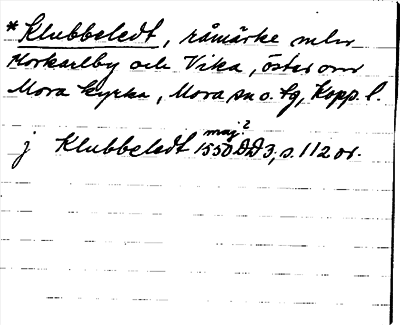 * Klubbeledt, råmärke mln
Morkarlby och Vika, öster om
Mora kyrka, Mora sn o. tg, Kopp. l.
maj?
j Klubbeledt 1550 DD 3, s. 112 or.